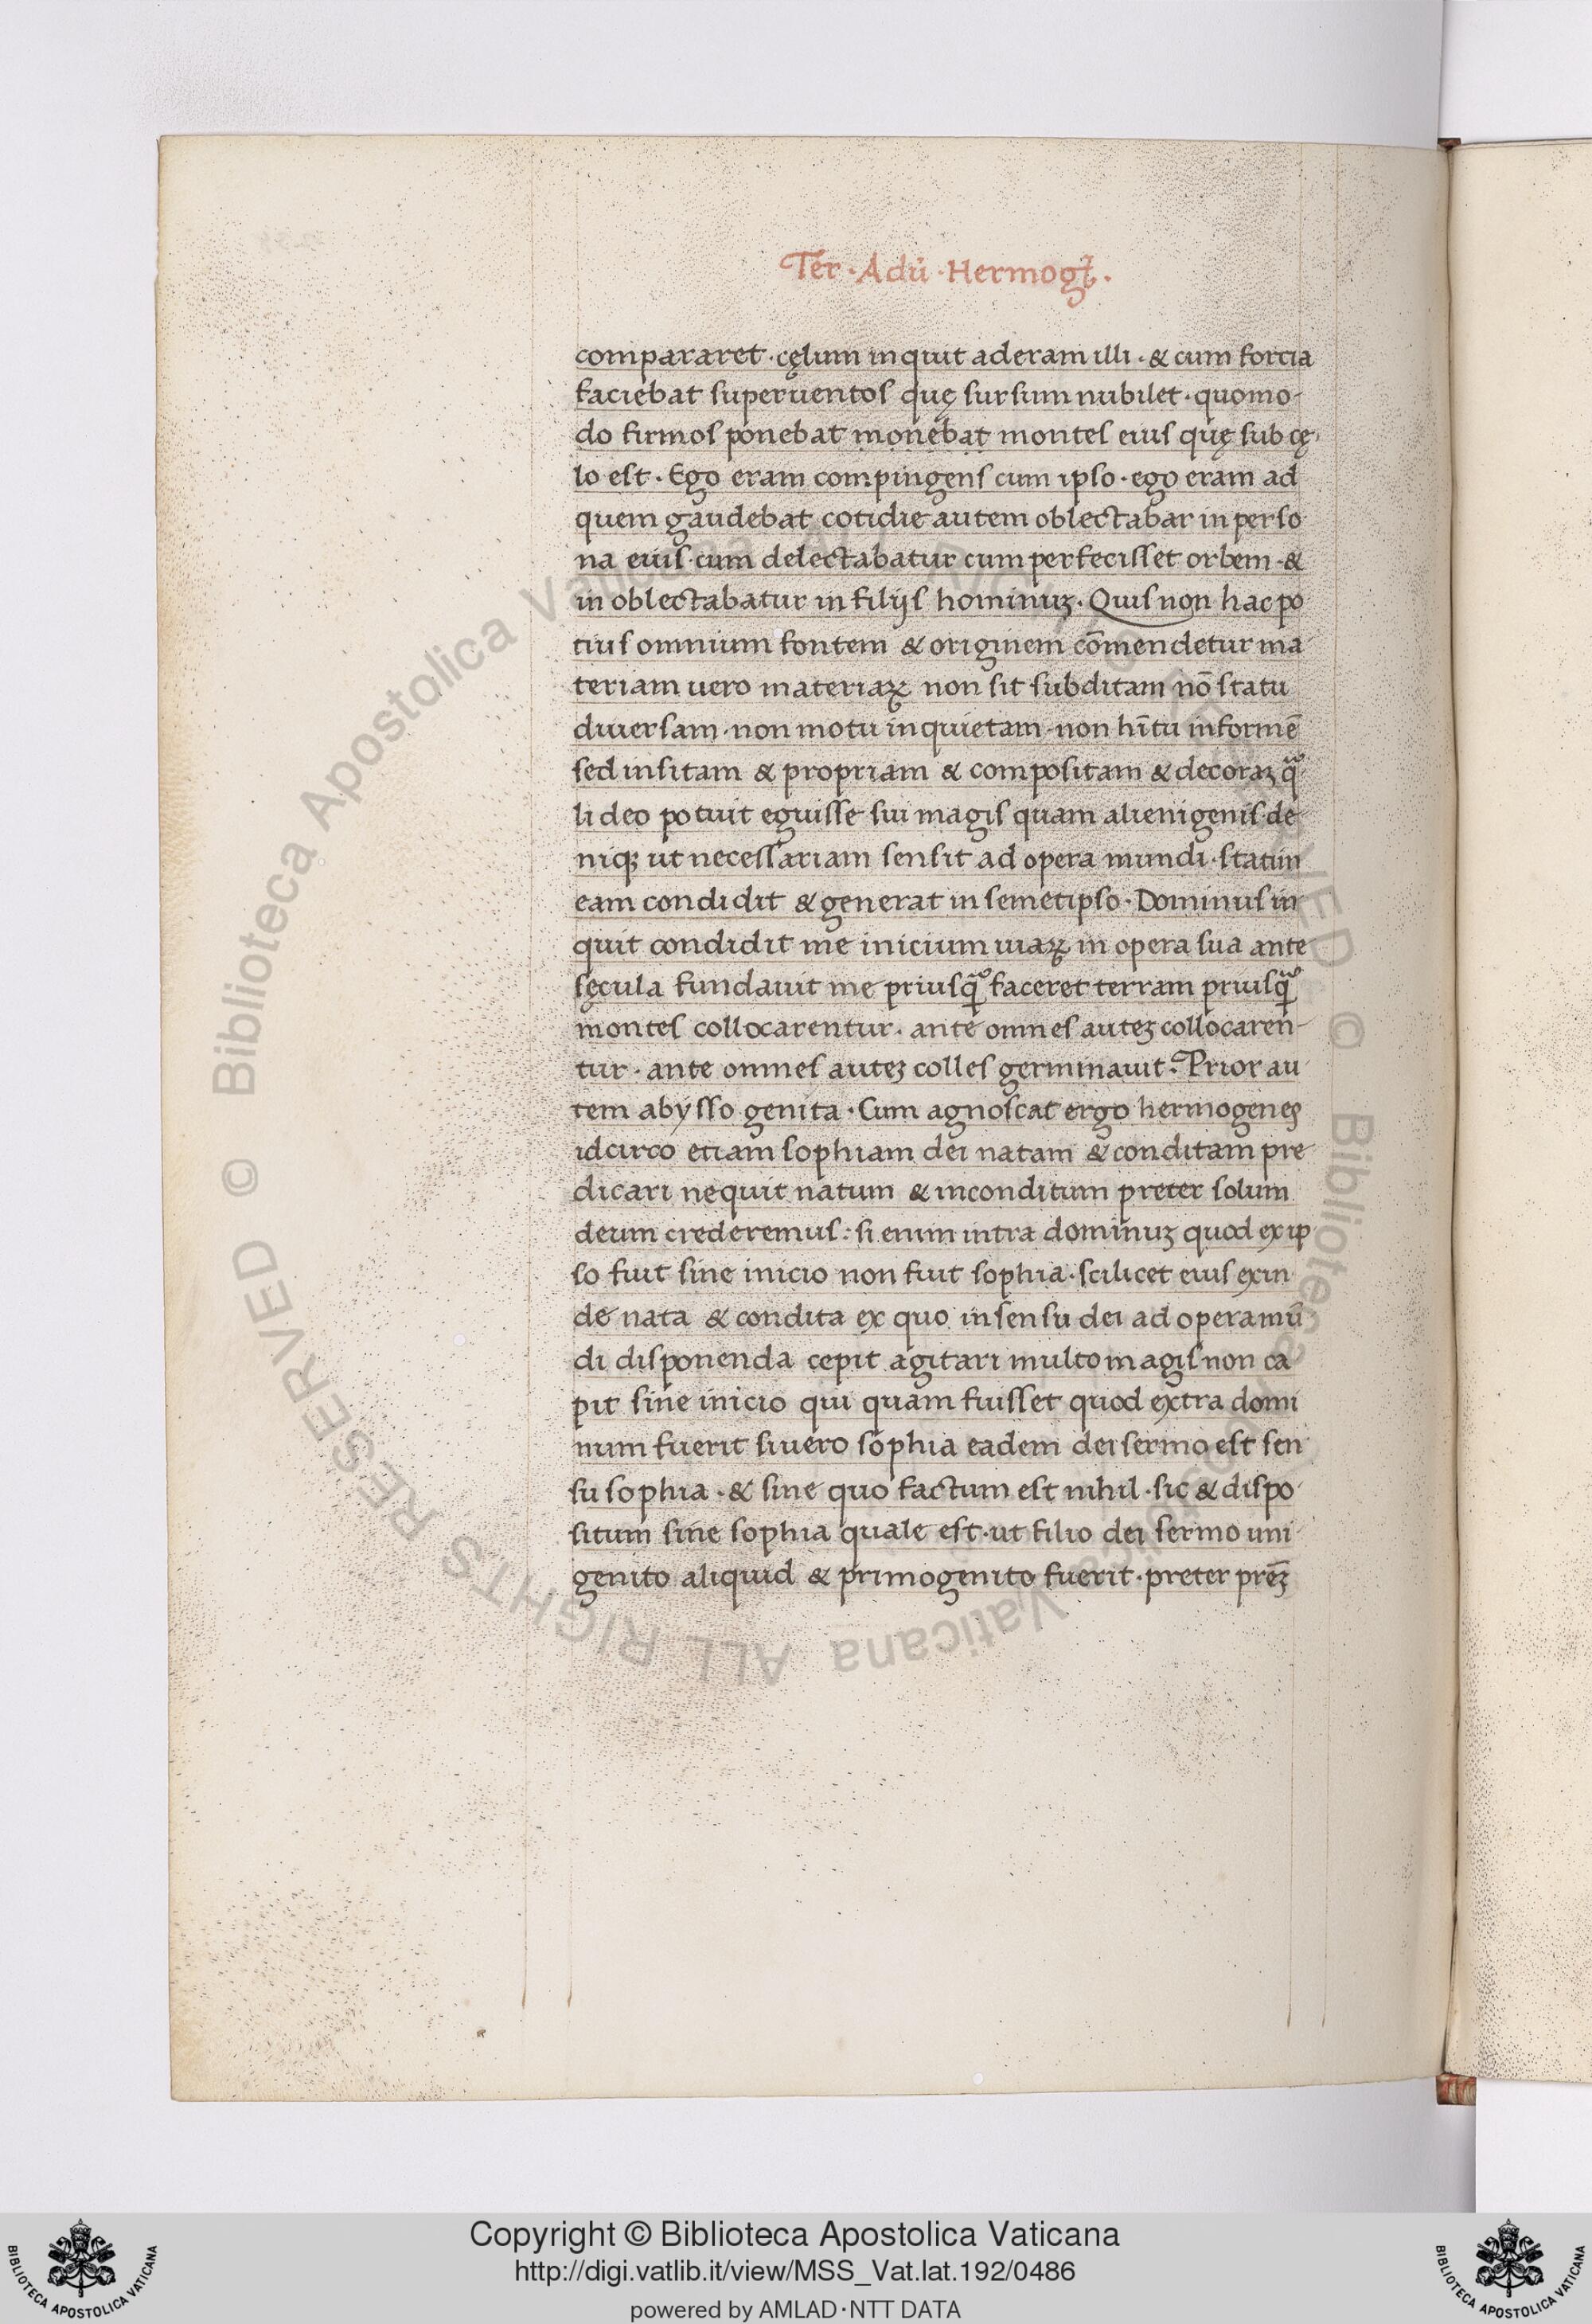 Ter · Adu̇ · Hermogt̄ ·
compararet · cęlum inquit aderam illi · & cum fortia
faciebat super uentos quę sursum nubilet · quomo-
do firmos ponebat monebat montes eius quę sub cę-
lo est · Ego eram compingens cum ipso · ego eram ad
quem gaudebat cotidie autem oblectabar in perso-
na eius · cum delectabatur cum perfecisset orbem · &
in oblectabatur in filijs hominuꝫ · Quis non hac po
tius omnium fontem & originem cōmendetur ma
teriam uero materiaꝝ non sit subditam nō statu
diuersam · non motu inquietam · non hītu informē
sed insitam & propriam & compositam & decoraꝫ qͣ-
li deo potuit eguisse sui magis quam alienigenis · de-
niqꝫ ut necessariam sensit ad opera mundi · statim
eam condidit & generat in semetipso · Dominus in-
quit condidit me inicium uiaꝝ in opera sua ante
sęcula fundauit me priusqͣ faceret terram priusqͣ
montes collocarentur · ante omnes auteꝫ collocaren-
tur · ante omnes auteꝫ colles germinauit · Prior au
tem abysso genita · Cum agnoscat ergo hermogenes
idcirco etiam sophiam dei natam & conditam pre-
dicari nequit natum & inconditum preter solum
deum crederemus : si enim intra dominuꝫ quod ex ip-
so fuit sine inicio non fuit sophia · scilicet eius exin-
de nata & condita ex quo in sensu dei ad opera mū-
di disponenda cepit agitari multo magis non ca-
pit sine inicio qui quam fuisset quod extra domi
num fuerit si uero sophia eadem dei sermo est sen
su sophia · & sine quo factum est nihil · sic & dispo-
situm sine sophia quale est · ut filio dei sermo uni-
genito aliquid & primogenito fuerit · preter prēꝫ
© Biblioteca Apostolica Vaticana ALL RIGHTS RESERVED © Biblioteca Apostolica Vaticana ALL RIGHTS RESERVED
Copyright © Biblioteca Apostolica Vaticana
http://digi.vatlib.it/view/MSS_Vat.lat.192/0486
powered by AMLAD·NTT DATA
BIBLIOTECA APOSTOLICA VATICANA
BIBLIOTECA APOSTOLICA VATICANA